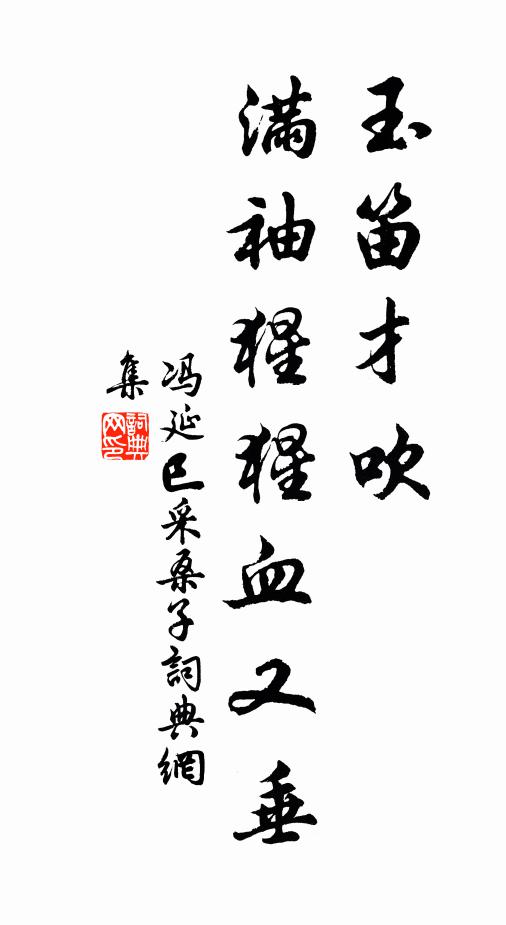 玉笛才吹
满袖猩猩血又垂
冯延巳采桑子詞典網
集
詞典网印